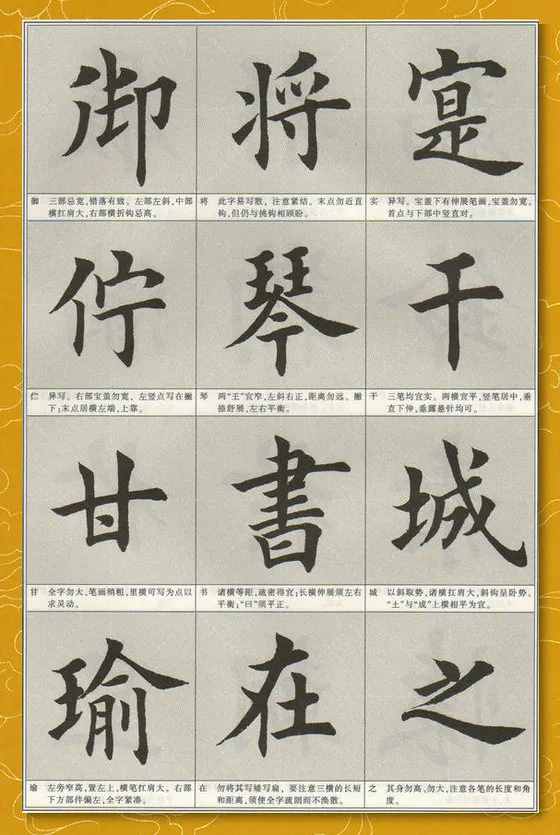 御 将 寔
御 三部忌宽,错落有致。左部左斜,中部
横扛肩大,右部横折钩忌高。
将 此字易写散,注意紧结。末点勿近直
钩,但仍与挑钩相顾盼。
实 异写。宝盖下有伸展笔画,宝盖勿宽。
首点与下部中竖直对。
佇 琴 干
伫 异写。右部宝盖勿宽。左竖点写在撇
下;末点居横左端,上靠。
琴 两“王”宜窄,左斜右正,距离勿远。撇
捺舒展,左右平衡。
干 三笔均宜实。两横宜平,竖笔居中,垂
直下伸,垂露悬针均可。
甘 書 城
甘 全字勿大,笔画稍粗,里横可写为点以
求灵动。
书 诸横等距,疏密得宜;长横伸展须左右
平衡;“曰”须平正。
城 以斜取势,诸横扛肩大,斜钩呈卧势。
“土”与“成”上横相平为宜。
瑜 在 之
瑜 左旁窄高,置左上,横笔扛肩大。右部
下方部件偏左,全字紧凑。
在 勿将其写矮写扁,要注意三横的长短
和距离,须使全字疏朗而不涣散。
之 其身勿高、勿大,注意各笔的长度和角
度。